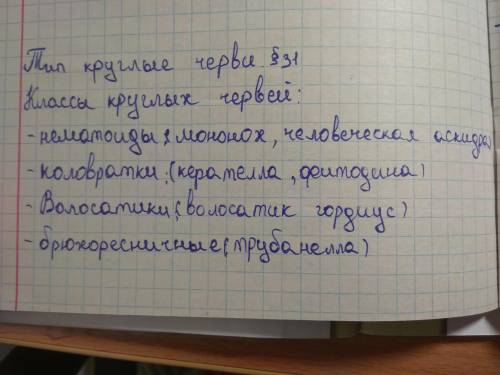 Тип круглые черви §31
Классы круглых червей:
-нематоиды; мононох, человеческая аскидра)
-коловратки: (керателла, филодина)
-Волосатики; (волосатик гордиус)
-брюхоресничные (трубанелла)